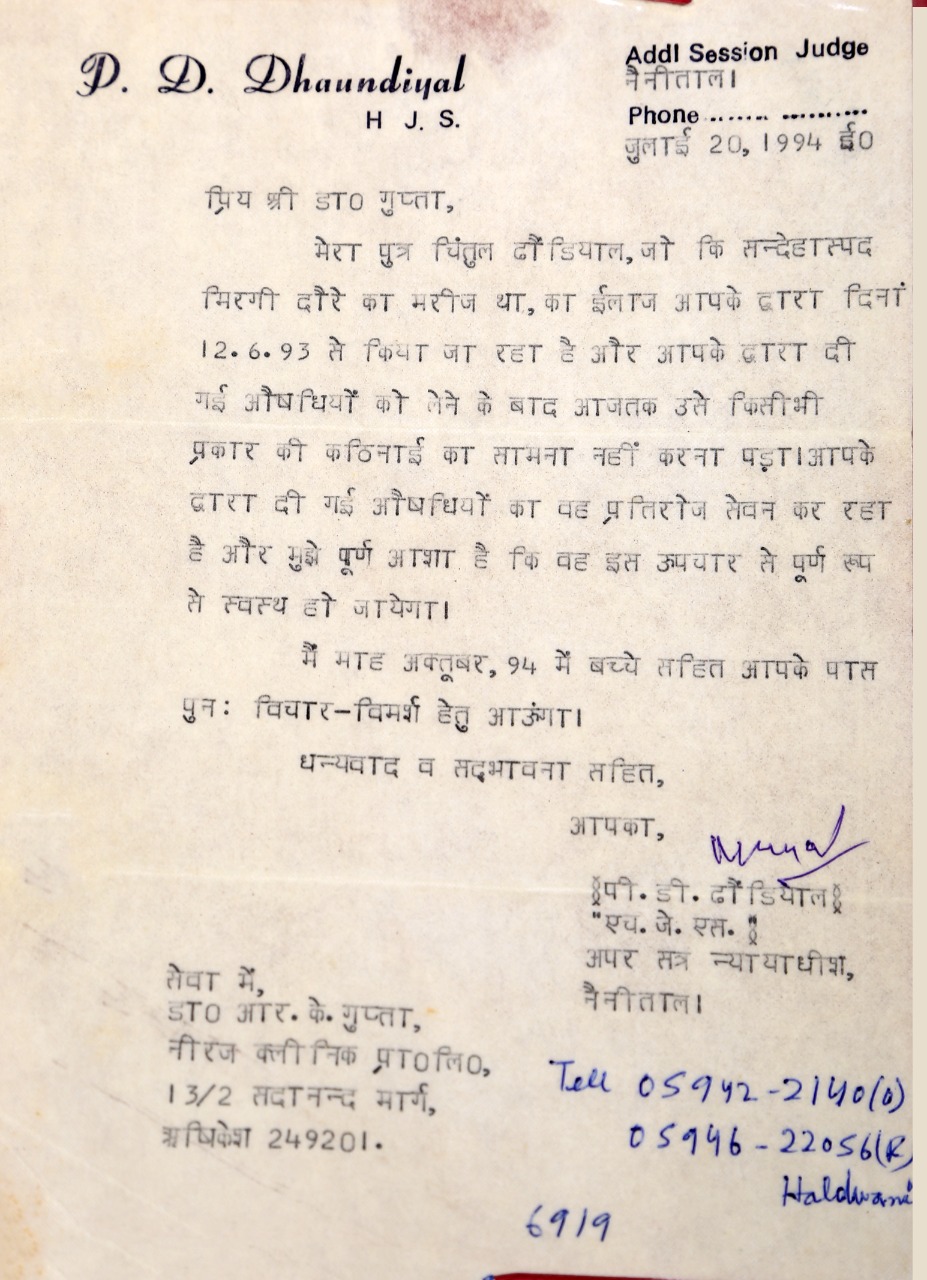 P. D. Dhaundiyal
H J. S.
Addl Session Judge
नैनीताल।
Phone ....... ...........
जुलाई 20, 1994 ई0
प्रिय श्री डा0 गुप्ता,
मेरा पुत्र चिंतुल ढौंडियाल,जो कि सन्देहास्पद
मिरगी दौरे का मरीज था,का ईलाज आपके द्वारा दिनां
12.6.93 से किया जा रहा है और आपके द्वारा दी
गई औषधियों को लेने के बाद आजतक उसे किसीभी
प्रकार की कठिनाई का सामना नहीं करना पड़ा।आपके
द्वारा दी गई औषधियों का वह प्रतिरोज सेवन कर रहा
है और मुझे पूर्ण आशा है कि वह इस उपचार से पूर्ण रूप
से स्वस्थ हो जायेगा।
मैं माह अक्तूबर,94 में बच्चे सहित आपके पास
पुन: विचार-विमर्श हेतु आऊंगा।
धन्यवाद व सद्भावना सहित,
आपका,
पी. डी. ढौंडियाल
"एच. जे. एस."
अपर सत्र न्यायाधीश,
नैनीताल।
सेवा में,
डा0 आर. के. गुप्ता,
नीरज क्लीनिक प्रा0लि0,
13/2 सदानन्द मार्ग,
ऋषिकेश 249201.
Tell 05942-2140(O)
05946-22056(R)
Haldwani
6919